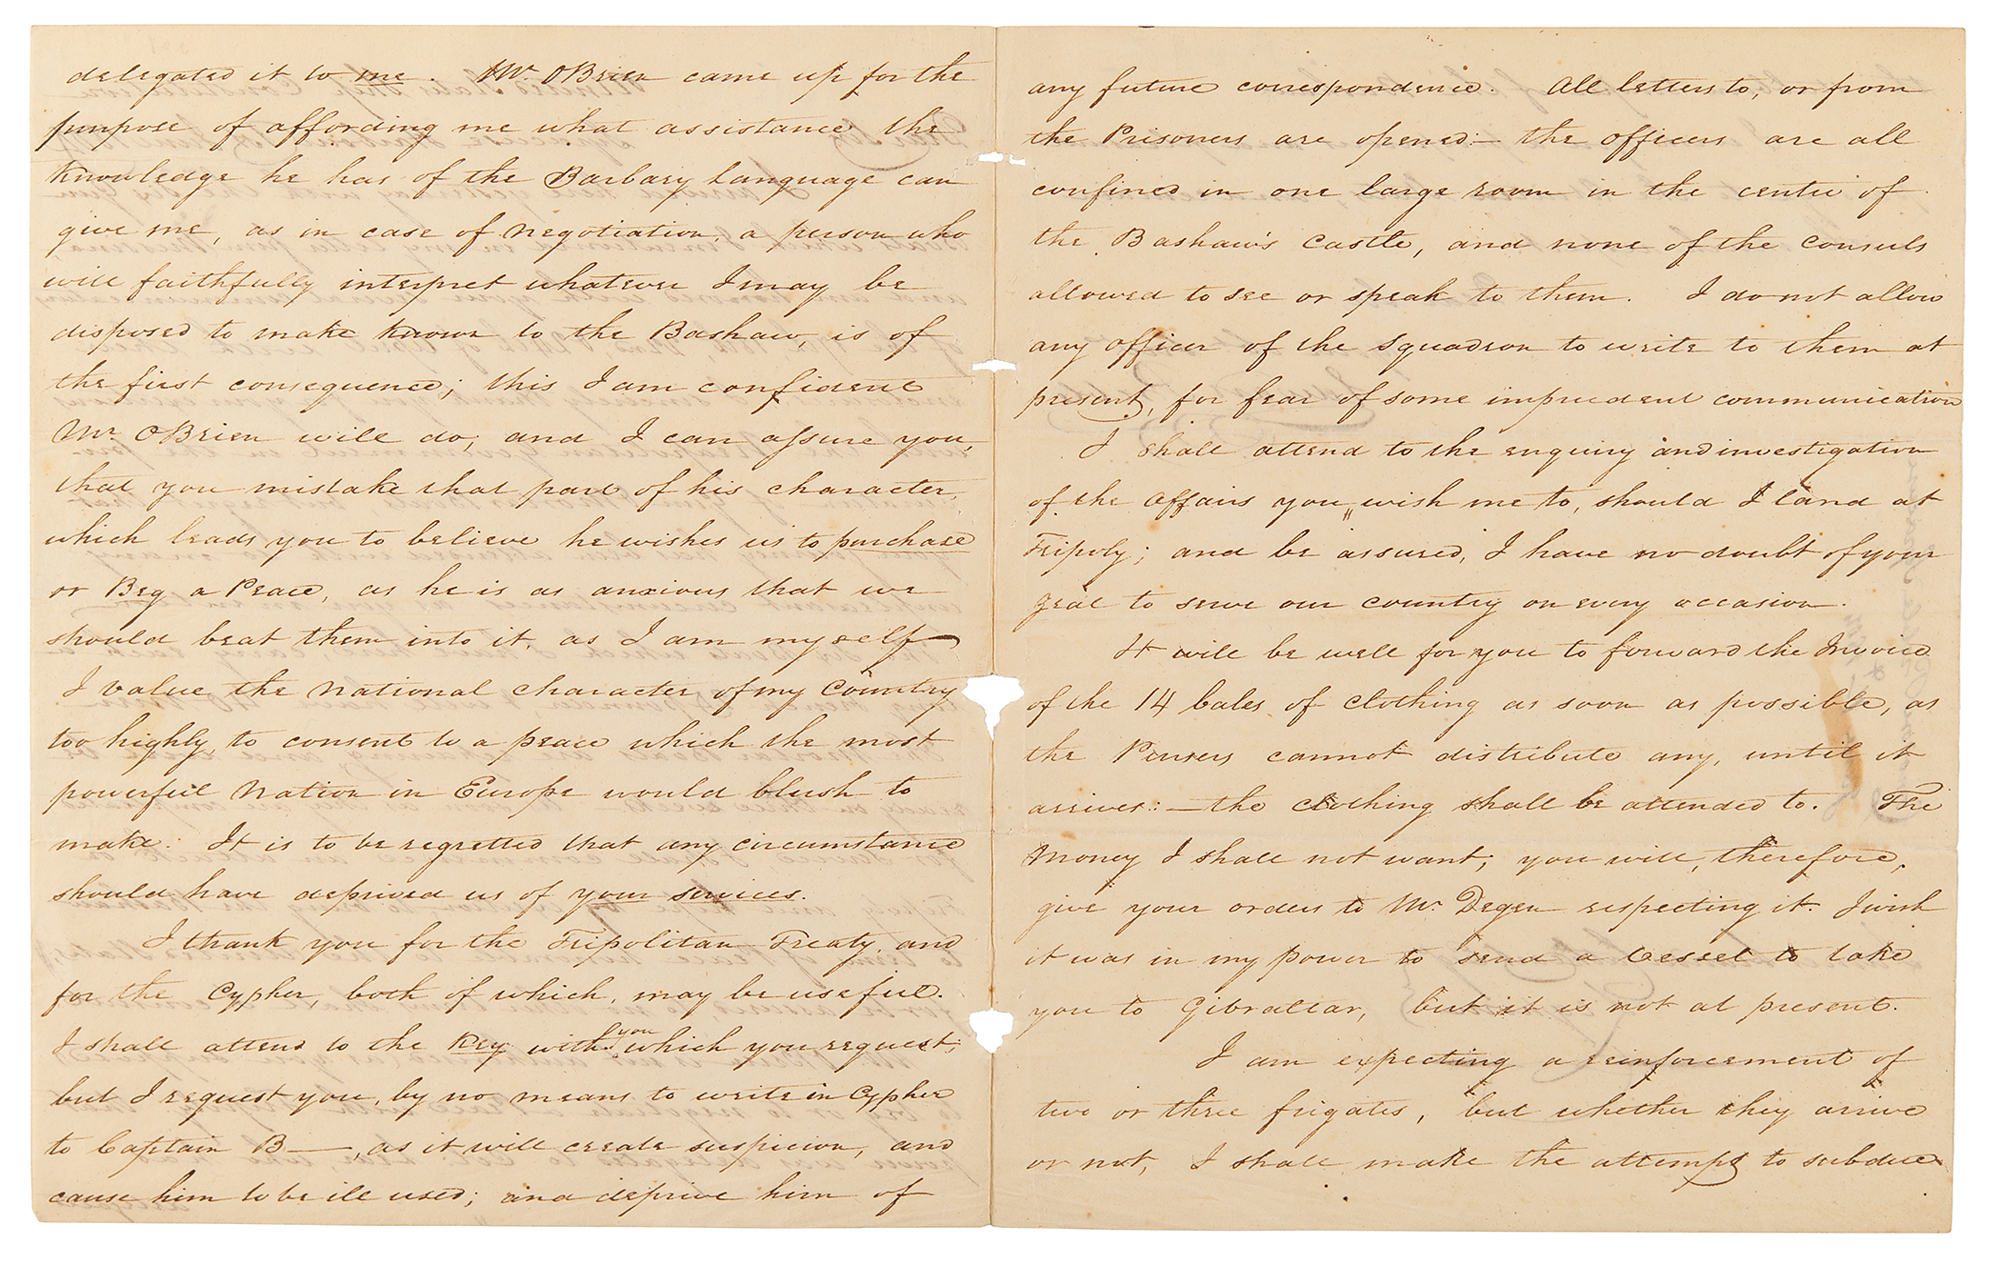 delegated it to me. Mr. OBrien came up for the
purpose of affording me what assistance the
knowledge he has of the Barbary Language can
give me, as in case of negotiation, a person who
will faithfully interpret whatever I may be
disposed to make known to the Bashaw, is of
the first consequence; this I am confident
Mr. OBrien will do, and I can assure you,
that you mistake that part of his character,
which leads you to believe he wishes us to purchase
or Beg a Peace, as he is as anxious that we
should beat them into it, as I am myself
I value the national character of my Country
too highly, to consent to a peace which the most
powerful Nation in Europe would blush to
make. It is to be regretted that any circumstance
should have deprived us of your services.
I thank you for the Tripolitan Treaty, and
for the Cypher, both of which, may be useful.
I shall attend to the Key with you which you request;
but I request you, by no means to write in Cypher
to Captain B—, as it will create suspicion, and
cause him to be ill used; and deprive him of
any future correspondence. All letters to, or from
the Prisoners are opened:— the officers are all
confined in one large room in the centre of
the Bashaw's Castle, and none of the consuls
allowed to see or speak to them. I do not allow
any officer of the Squadron to write to them at
present, for fear of some imprudent communication
I shall attend to the enquiry and investigation
of the affairs you wish me to, should I land at
Tripoly; and be assured, I have no doubt of your
zeal to serve our country on every occasion.
It will be well for you to forward the Invoice
of the 14 bales of clothing as soon as possible, as
the Pursers cannot distribute any, until it
arrives:— the clothing shall be attended to. The
Money I shall not want; you will, therefore,
give your orders to Mr. Degen respecting it. I wish
it was in my power to send a Vessel to take
you to Gibraltar, but it is not at present.
I am expecting a reinforcement of
two or three frigates, but whether they arrive
or not, I shall make the attempt to subdue